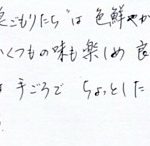 ごもりたち"は 色鮮やか
いくつもの味も楽しめ 良
は 手ごろで ちょっとした